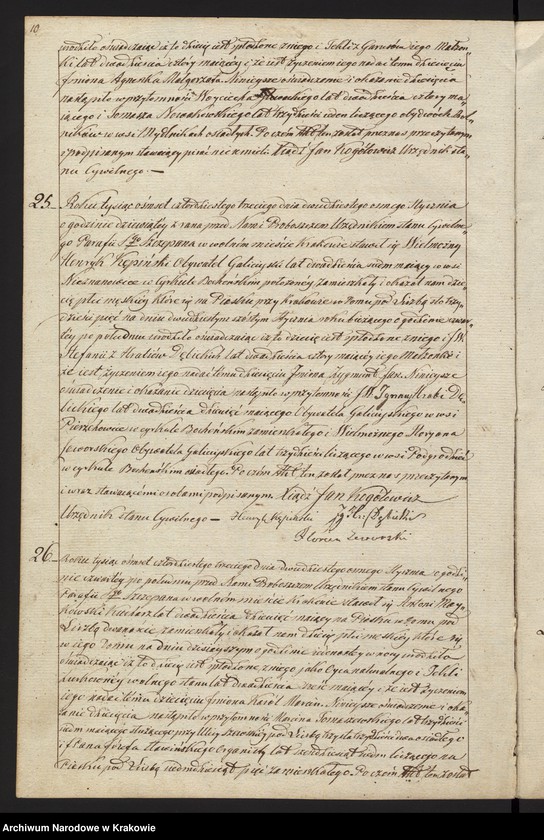 10
urodziło oświadczając iż to dziecię jest spłodzone z niego i Tekli z Garusów jego Małżon-
ki lat dwadzieścia cztery mającej i że jest życzeniem jego nadać temu dziecięciu
Imiona Agneszka Małgorzata. Niniejsze oświadczenie i okazanie dziecięcia
nastąpiło w przytomności Woyciecha lat dwadzieścia cztery ma-
jącego i Tomasza Nowakowskiego lat trzydzieści jeden liczącego obydwóch Rol-
ników w wsi osiadłych. Poczem Akt ten został przez nas przeczytanym
i podpisanym stawający pisać nieumieli. Xiądz Jan Kegółowicz Urzędnik sta-
nu Cywilnego. —
25. Roku tysiąc ośmset czterdziestego trzeciego dnia dwudziestego ósmego Stycznia
o godzinie dziewiątej z rana przed Nami Proboszczem Urzędnikiem stanu Cywilne-
go Parafii Sgo Szczepana w wolnym mieście Krakowie stawił się Wielmożny
Henryk Kępiński Obywatel Galicyjski lat dwadzieścia siedm mający w wsi
Nieznanowice w Cyrkule Bocheńskim położonej zamieszkały i okazał nam dzie-
cię płci męskiej które się na Piasku przy Krakowie w domu pod Liczbą sto trzy-
dzieści pięć na dniu dwudziestym szóstym Stycznia roku bieżącego o godzinie czwar-
tej po południu urodziło oświadczając iż to dziecię jest spłodzone z niego i JW.
Stefanii z Hrabiów Dębickich lat dwadzieścia cztery mającej jego Małżonki i
że jest życzeniem nadać temu dziecięciu Imiona Zygmunt Jan. Niniejsze
oświadczenie i okazanie dziecięcia nastąpiło w przytomności JW Ignacego Hrabi Dę-
bickiego lat dwadzieścia dziewięć mającego Obywatela Galicyjskiego w wsi
Pierzchowice w cyrkule Bocheńskim zamieszkałego i Wielmożnego Floryana
Jaworskiego Obywatela Galicyjskiego lat trzydzieści liczącego w wsi Podgrodzie
w cyrkule Bocheńskim osiadłego. Poczem Akt ten został przez nas przeczytanym
i wraz stawającemi osobami podpisanym. Xiądz Jan Kegółowicz
Urzędnik stanu Cywilnego — Henryk Kępiński Ig. Hr. Dębicki
Florian Jaworski
26. Roku tysiąc ośmset czterdziestego trzeciego dnia dwudziestego ósmego Stycznia o godzi-
nie czwartej po południu przed Nami Proboszczem Urzędnikiem stanu Cywilnego
Parafii Sgo Szczepana w wolnym mieście Krakowie stawił się Antoni May-
kowski Kucharz lat dwadzieścia dziewięć mający na Piasku w domu pod
Liczbą dwanaście zamieszkały i okazał nam dziecię płci męskiej które się
w tego domu na dniu dzisiejszym o godzinie w nocy urodziło
oświadczając iż to dziecię jest spłodzone z niego jako Ojca naturalnego i Tekli
wolnego stanu lat dwadzieścia mającej i że jest życzeniem
jego nadać temu dziecięciu Imiona Karol Marcin. Niniejsze oświadczenie i oka-
zanie dziecięcia nastąpiło w przytomności Marcina Tomaszewskiego lat trzydzieści
siedm mającego służącego przy Ulicy Szewskiej pod Liczbą trzysta trzydzieści dwa osiadłego
i Pana Józefa Sławińskiego Organisty lat siedm liczącego na
Piasku pod Liczbą siedmdziesiąt pięć zamieszkałego. Poczem Akt ten został
Archiwum Narodowe w Krakowie